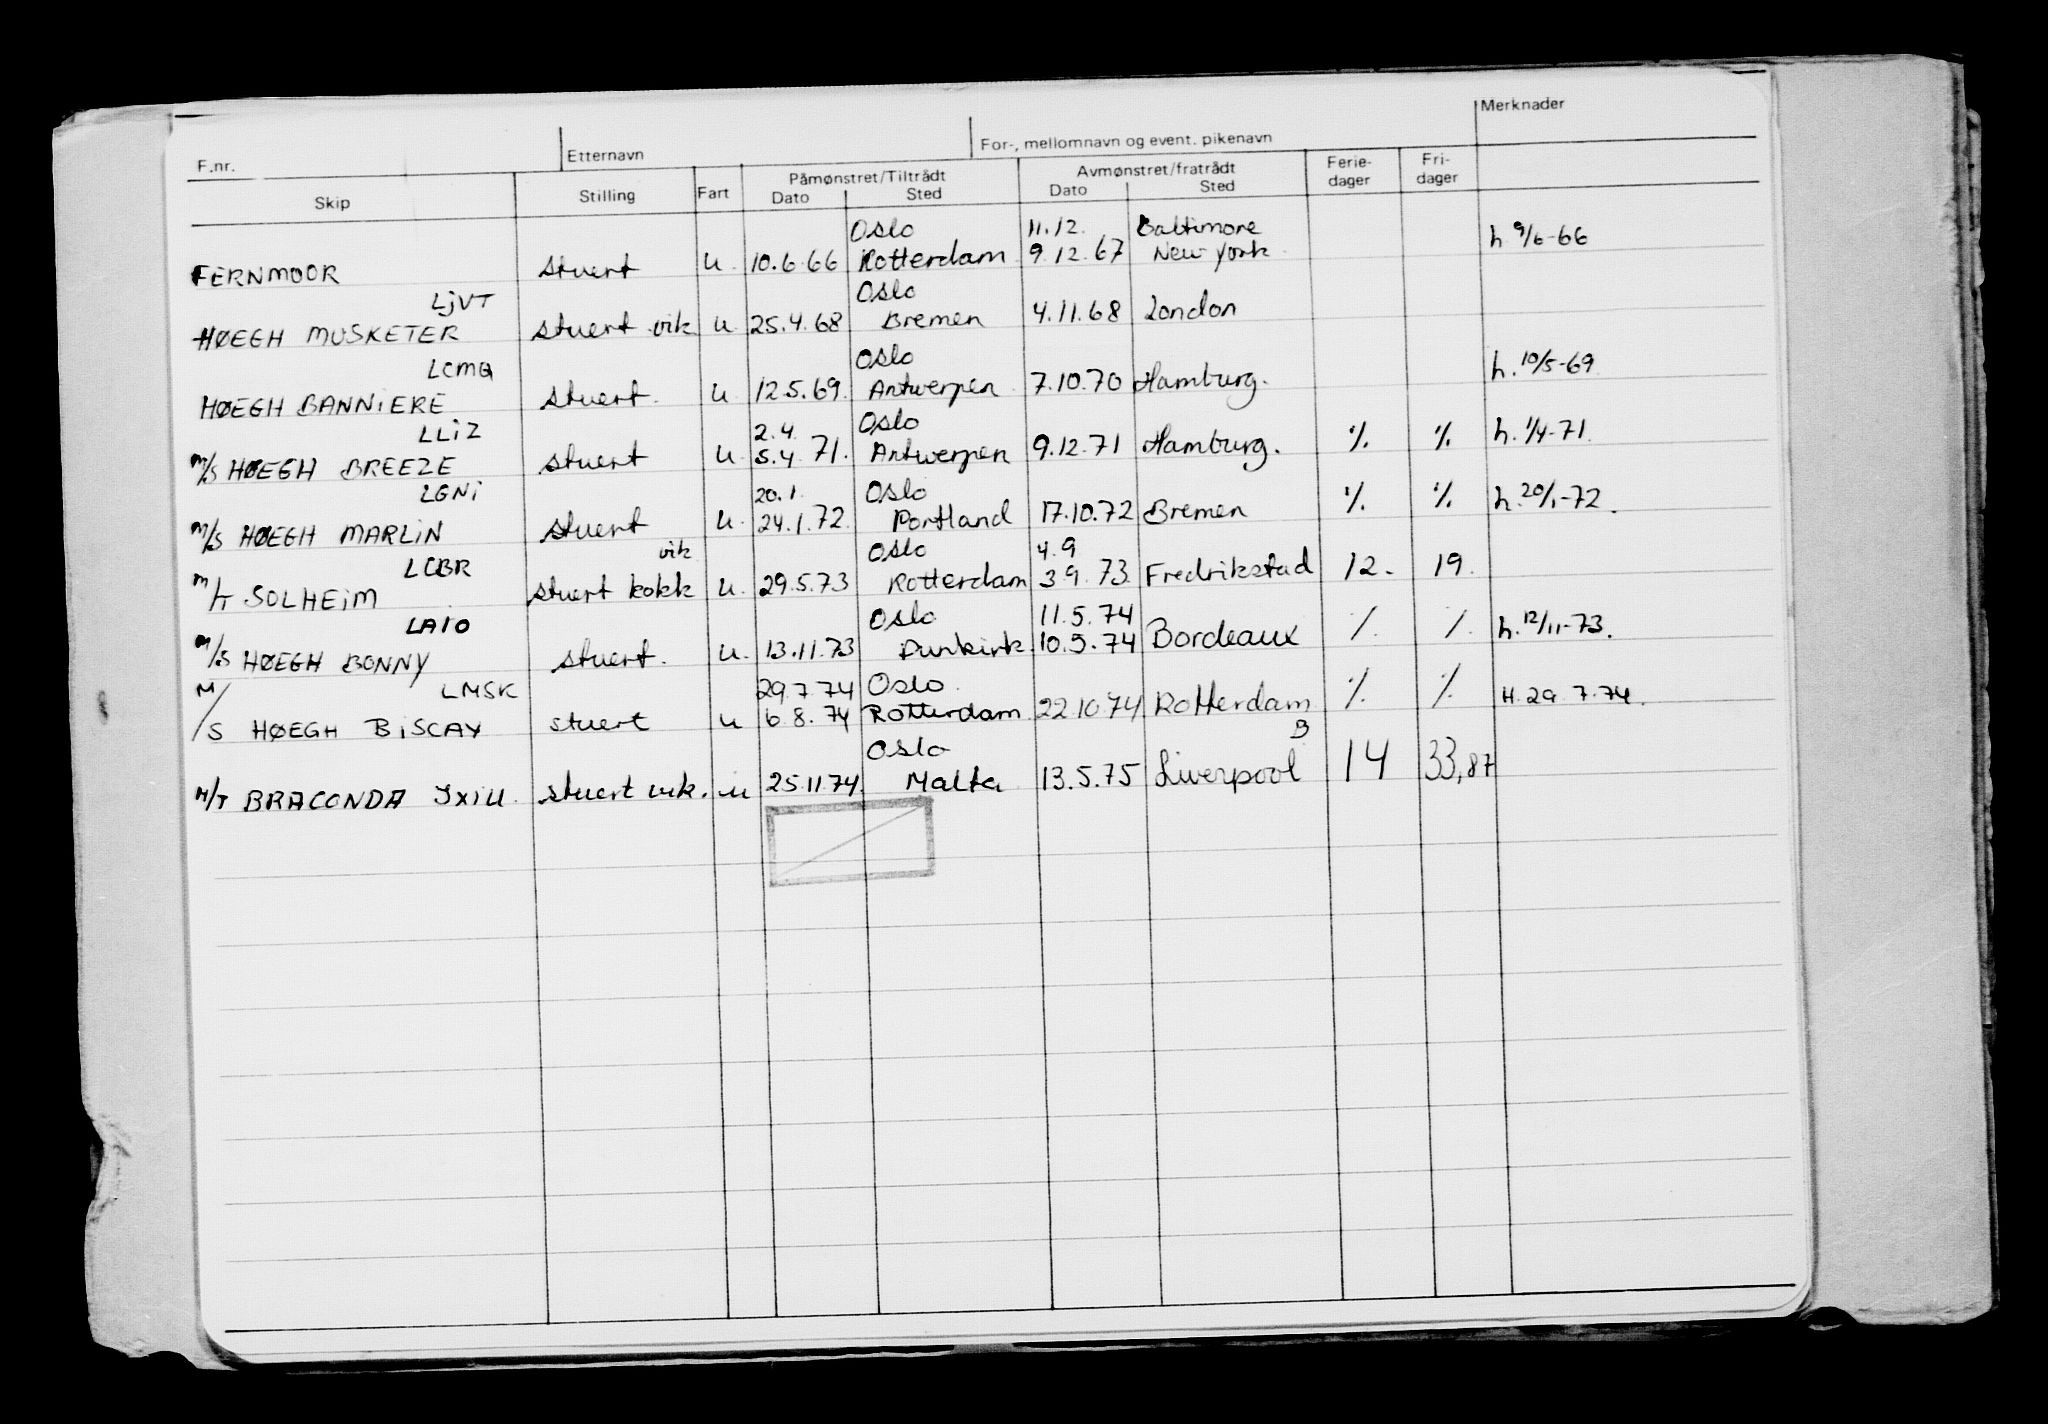 Merknader
F.nr. Etternavn For-, mellomnavn og event. pikenavn
Skip Stilling Fart Påmønstret/Tiltrådt Avmønstret/fratrådt Ferie- Fri-
Dato Sted Dato Sted dager dager
Oslo 11.12. Baltimore
FERNMOOR stuert u. 10.6.66 Rotterdam 9.12.67 New York h 9/6-66
LJVT Oslo
HØEGH MUSKETER stuert vik u 25.4.68 Bremen 4.11.68 London
LCMQ Oslo
HØEGH BANNIERE stuert. u 12.5.69. Antwerpen 7.10.70 Hamburg. h. 10/5-69
LLiZ 2.4. Oslo
M/S HØEGH BREEZE stuert u 5.4.71. Antwerpen 9.12.71 Hamburg. % % h. 1/4-71.
LGNi 20.1. Oslo
M/S HØEGH MARLiN stuert u. 24.1.72. Portland 17.10.72 Bremen % % h. 20/1-72.
LCBR vik Oslo 4.9
M/T SOLHEiM stuert kokk u. 29.5.73 Rotterdam 3.9.73. Fredrikstad 12. 19.
LAIO Oslo 11.5.74
M/S HØEGH BONNY stuert. u. 13.11.73 Dunkirk 10.5.74 Bordeaux % % h. 12/11-73.
LMSK 29.7.74 Oslo
M/S HØEGH BiSCAY stuert u 6.8.74 Rotterdam 22.10.74 Rotterdam % % H. 29.7.74.
Oslo B
M/T BRACONDA JXiU. stuert vik. u 25.11.74. Malta 13.5.75 Liverpool 14 33,87